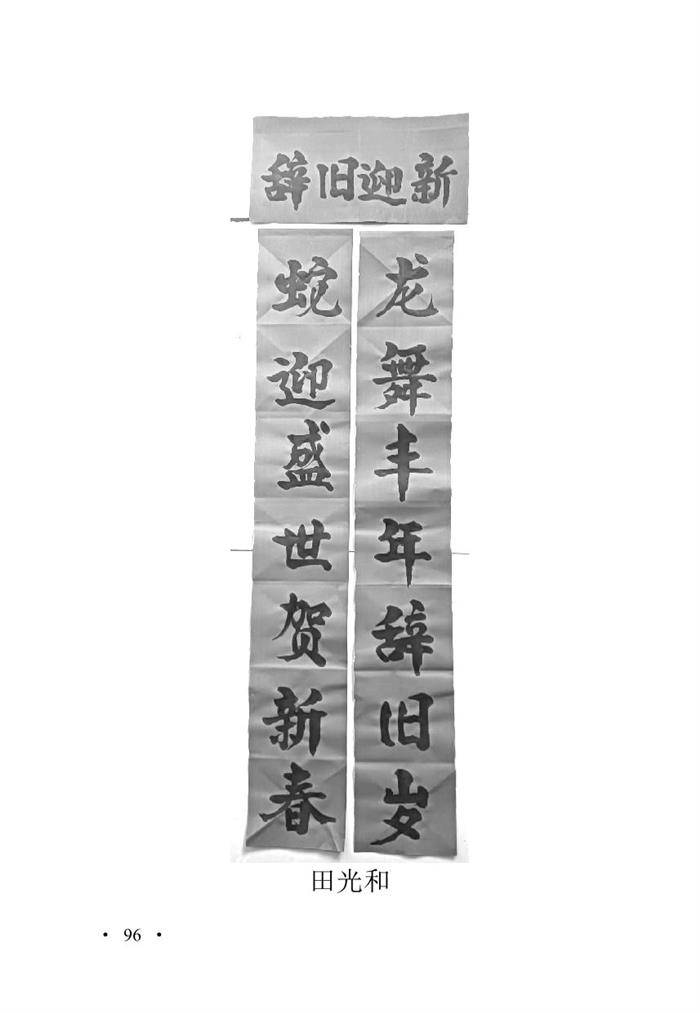 辞旧迎新
龙舞丰年辞旧岁
蛇迎盛世贺新春
田光和
• 96 •